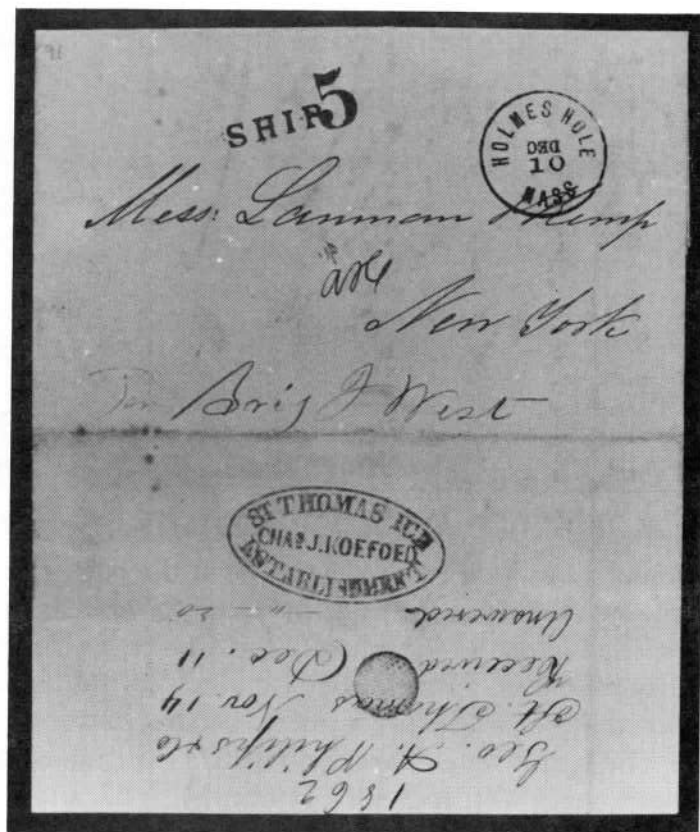 SHIP 5
HOLMES HOLE
DEC
10
MASS
Mess: Lanman & Kemp
New York
Per Brig J West
ST THOMAS ICE
CHAS J. KOEFOED
ESTABLISHMENT
1862
Geo. A. Philips & Co
St. Thomas Nov. 14
Received Dec. 11
Answered " 20